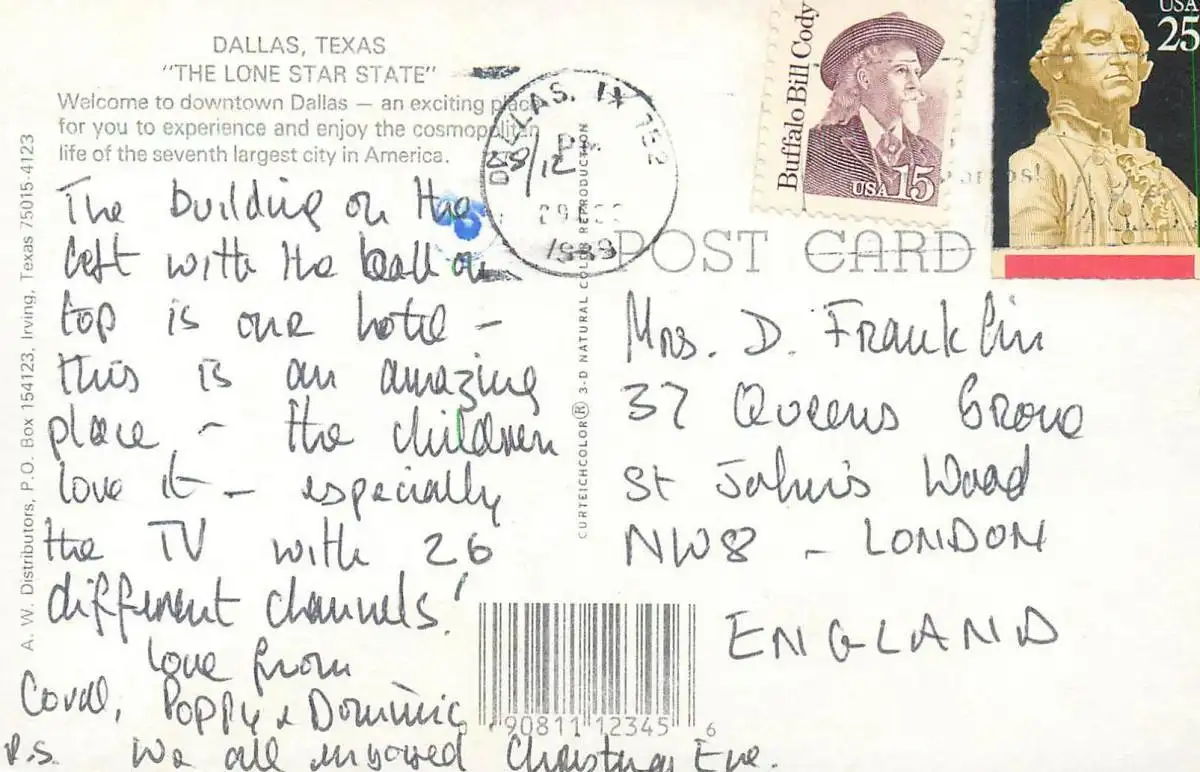 DALLAS, TEXAS
"THE LONE STAR STATE"
Welcome to downtown Dallas — an exciting place
for you to experience and enjoy the cosmopolitan
life of the seventh largest city in America.
The building on the
left with the ball on
top is our hotel -
this is an amazing
place - the children
love it - especially
the TV with 26
different channels!
love from
Coral, Poppy & Dominic
P.S. We all enjoyed Christmas Eve.
A. W. Distributors, P.O. Box 154123, Irving, Texas 75015-4123
CURTEICHCOLOR® 3-D NATURAL COLOR REPRODUCTION
DALLAS, TX 752
PM
1989
Buffalo Bill Cody
USA 15
USA
25
POST CARD
Mrs. D. Franklin
37 Queens Grove
St John's Wood
NW8 - LONDON
ENGLAND
90811 12345 6